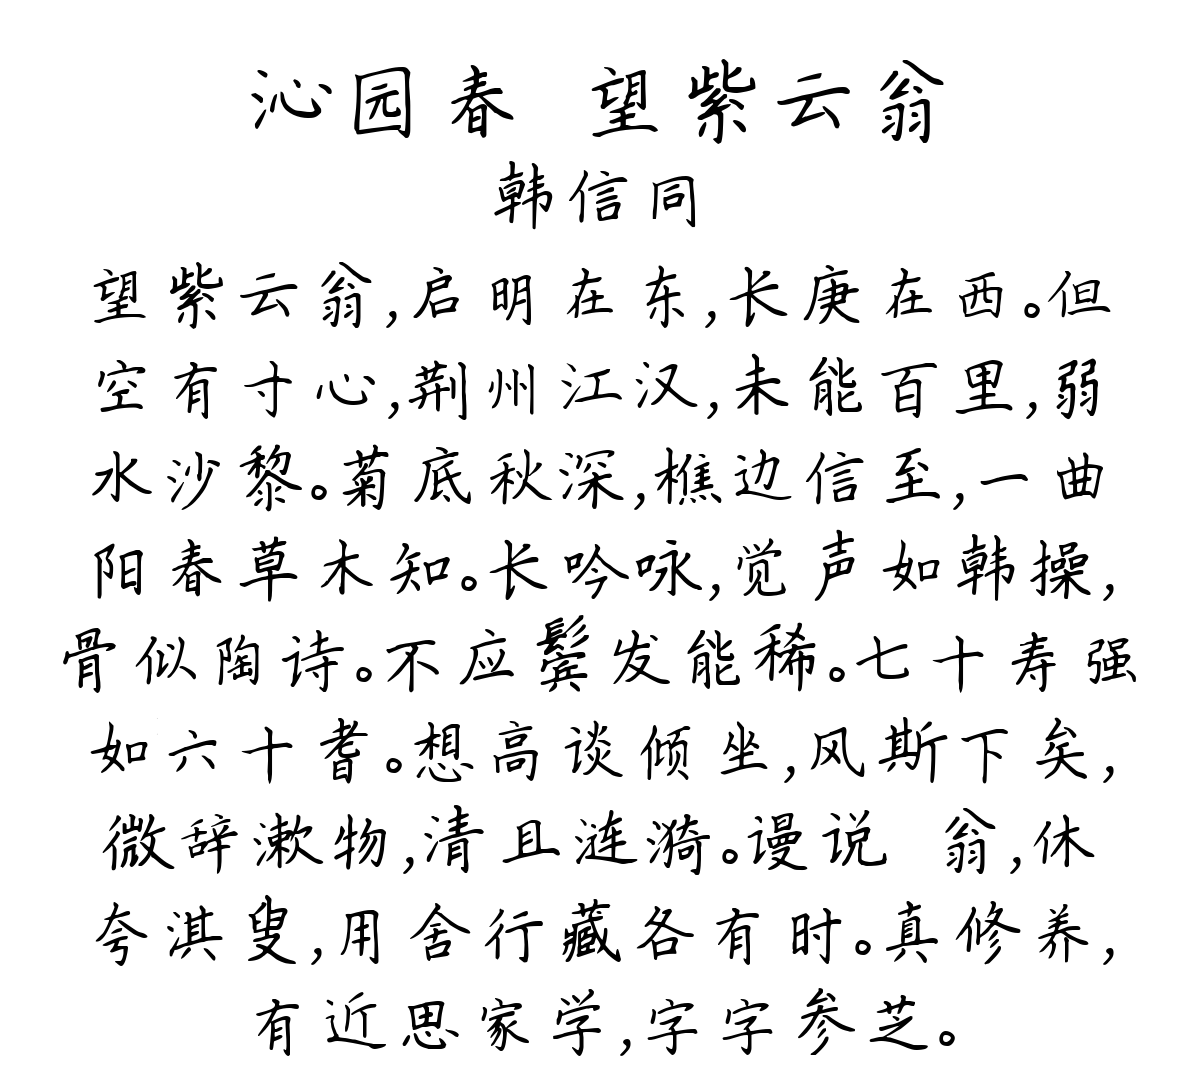 沁园春 望紫云翁
韩信同
望紫云翁,启明在东,长庚在西。但
空有寸心,荆州江汉,未能百里,弱
水沙黎。菊底秋深,樵边信至,一曲
阳春草木知。长吟咏,觉声如韩操,
骨似陶诗。不应鬓发能稀。七十寿强
如六十耆。想高谈倾坐,风斯下矣,
微辞漱物,清且涟漪。谩说 翁,休
夸淇叟,用舍行藏各有时。真修养,
有近思家学,字字参芝。